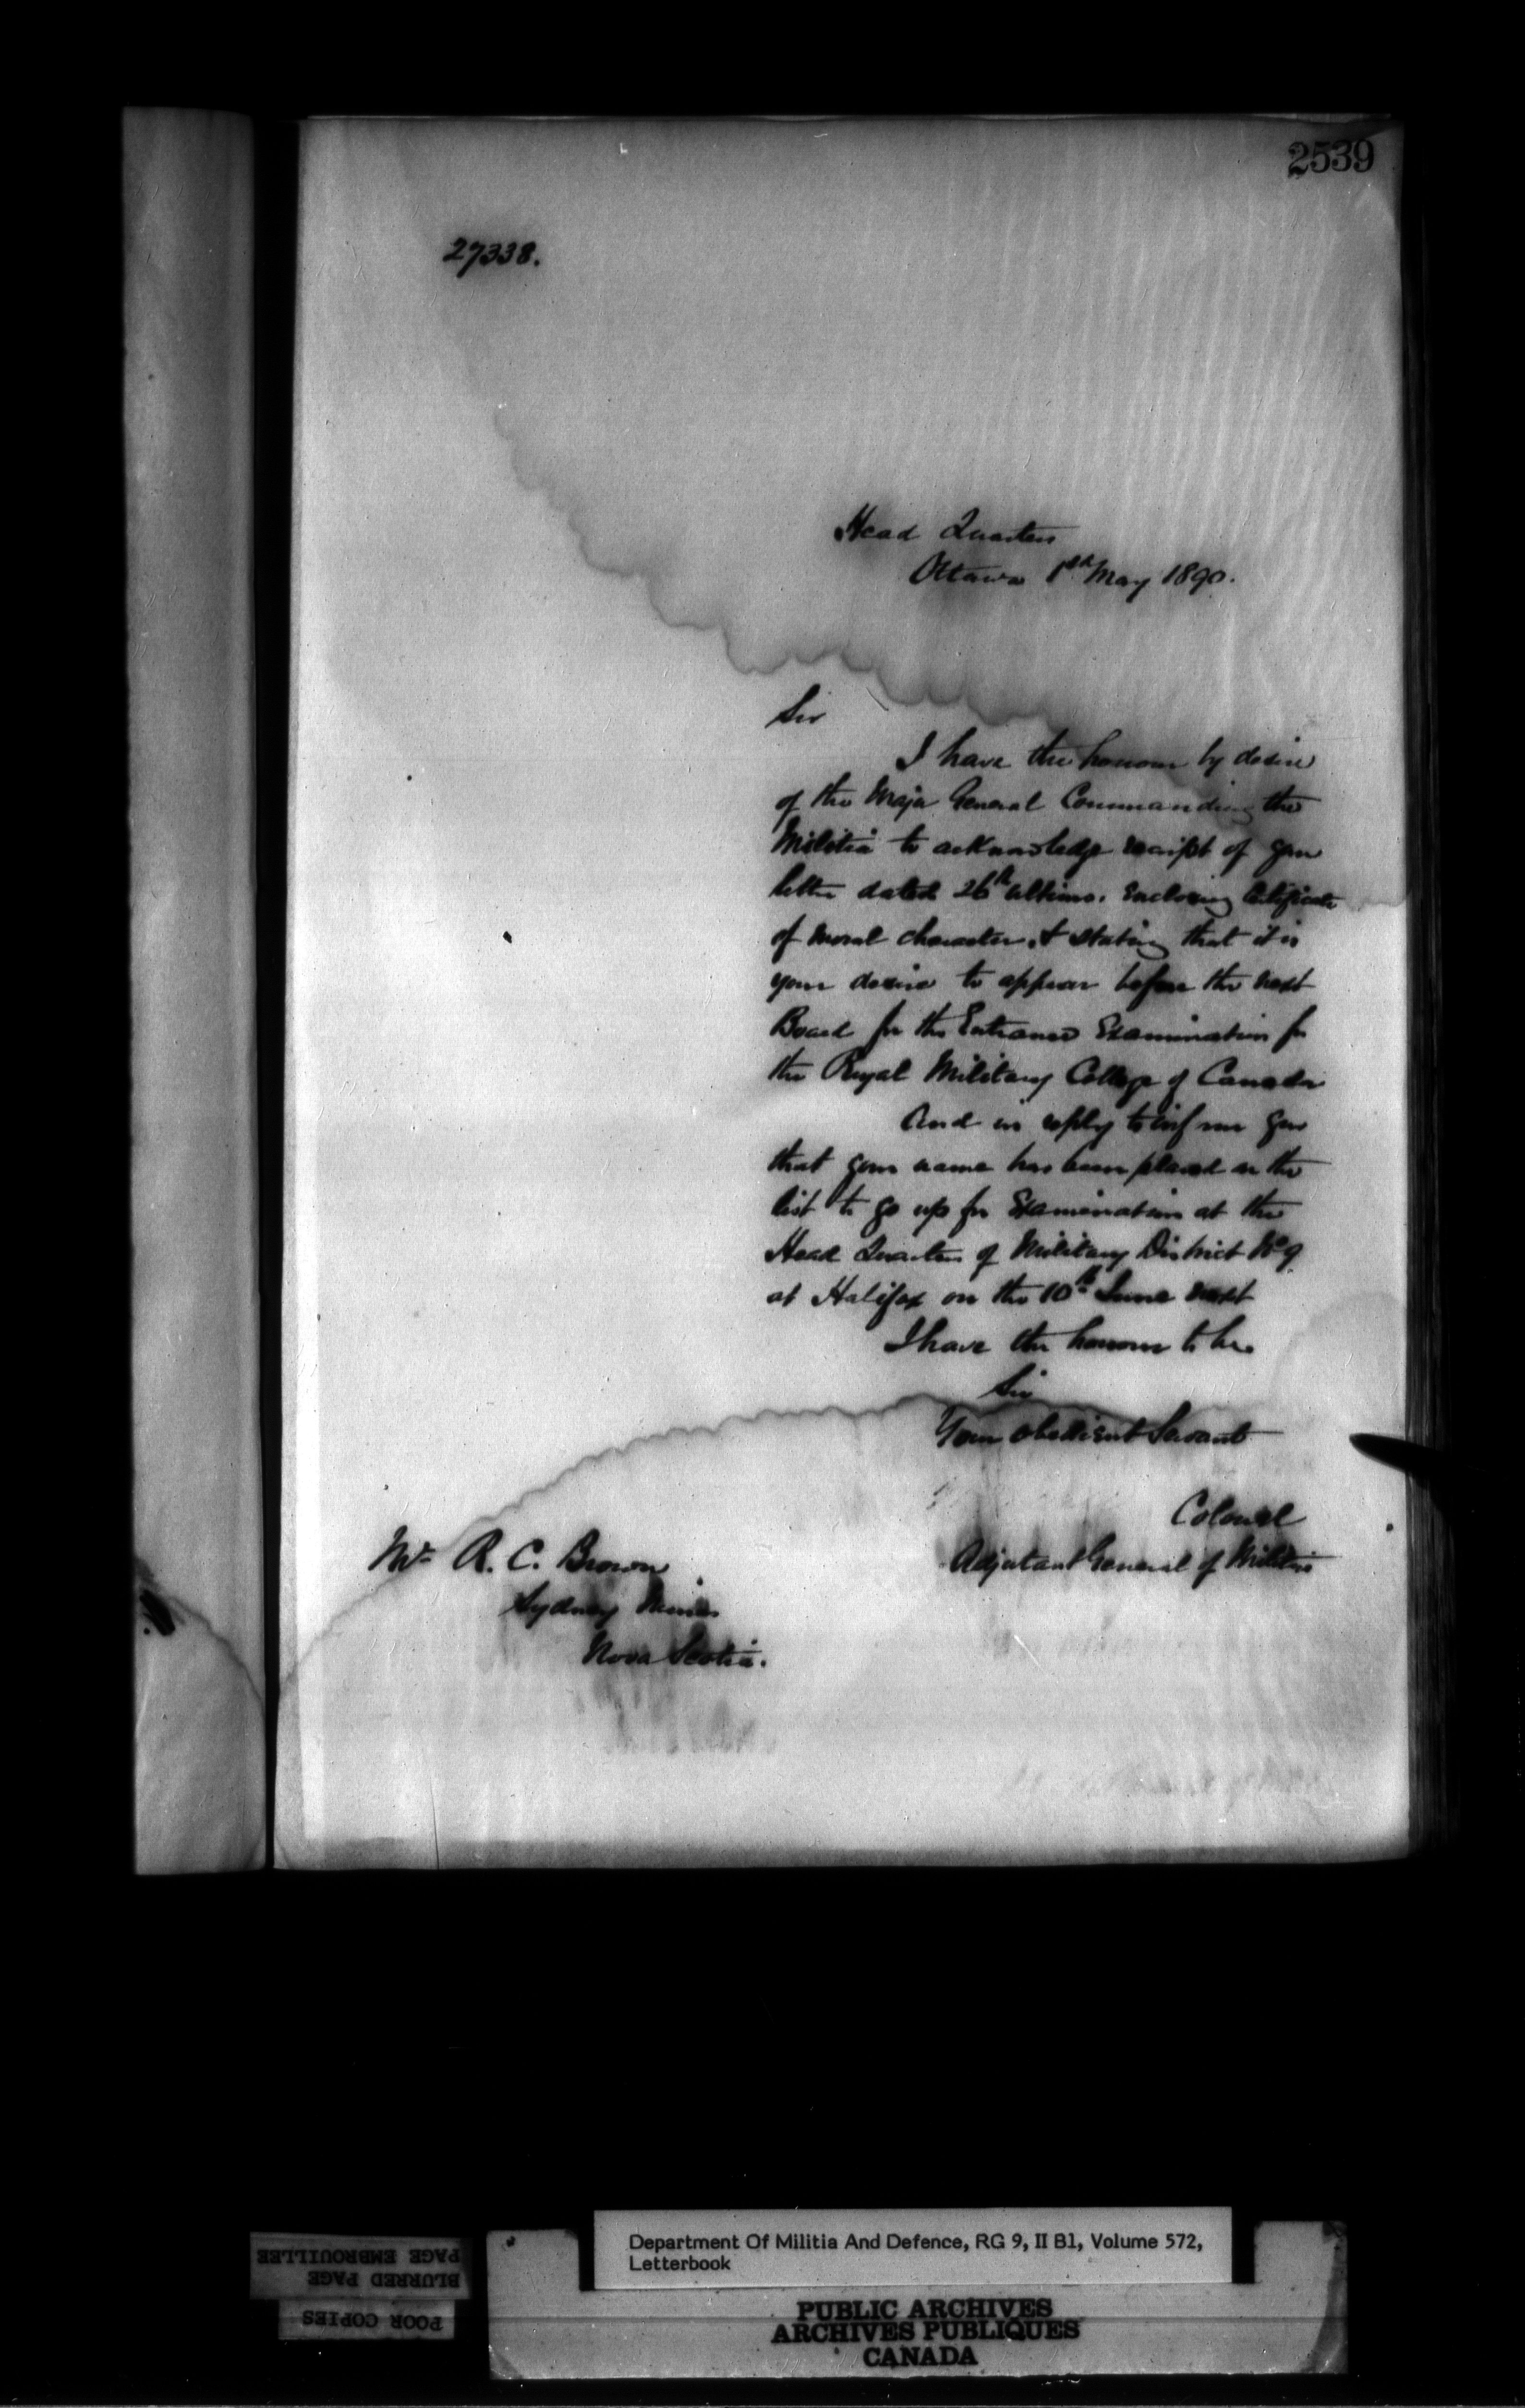 2539
27338.
Head Quarters
Ottawa 1st May 1890.
Sir
I have the honour by desire
of the Major General Commanding the
Militia to acknowledge receipt of your
letter dated 26th ultimo. Enclosing Certificate
of moral character, & stating that it is
your desire to appear before the next
Board for the Entrance Examination for
the Royal Military College of Canada
And in reply to inform you
that your name has been placed on the
list to go up for Examination at the
Head Quarters of Military District No 9
at Halifax on the 10th June next
I have the honour to be
Sir
Your obedient Servant
Colonel
Adjutant General of Militia
Mr R. C. Brown
Sydney Mines
Nova Scotia.
Department Of Militia And Defence, RG 9, II B1, Volume 572,
Letterbook
PUBLIC ARCHIVES
ARCHIVES PUBLIQUES
CANADA
POOR COPIES
BLURRED PAGE
PAGE EMBROUILLEE